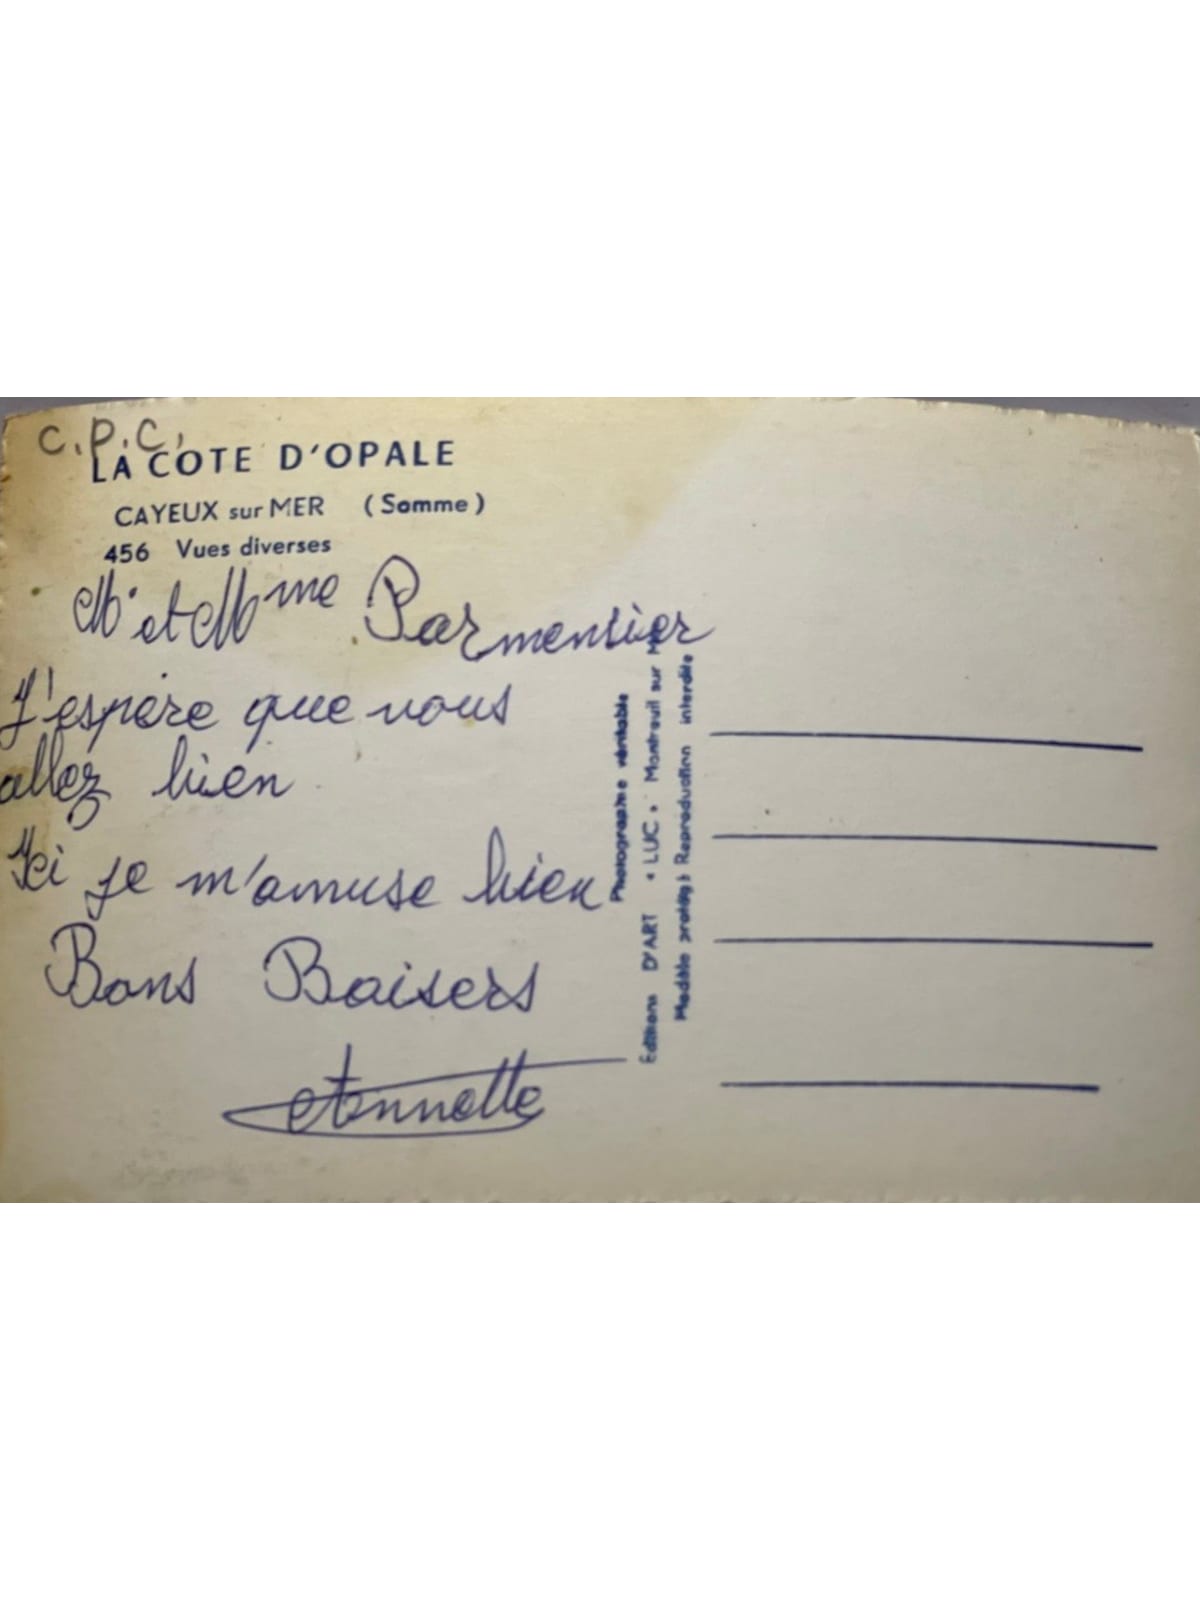 C.P.C.
LA COTE D'OPALE
CAYEUX sur MER (Somme)
456 Vues diverses
M. et Mme Parmentier
J'espère que vous
allez bien
Ici je m'amuse bien
Bons Baisers
Annette
Photographie véritable
Editions D'ART « LUC » Montreuil sur Mer
Modèle protégé Reproduction interdite